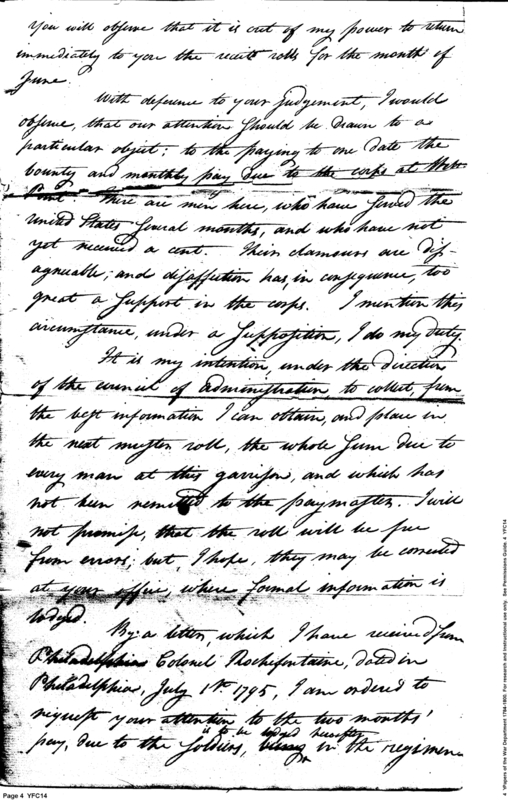 You will observe that it is out of my power to return
immediately to you the receit rolls for the month of
June.
With deference to your judgement, I would
observe, that our attention should be drawn to a
particular object; to the paying to one date the
bounty and monthly pay due to the corps at West
Point. There are men here, who have served the
United States several months, and who have not
yet received a cent. Their clamours are dis-
agreeable; and disaffection has, in consequence, too
great a support in the corps. I mention this
circumstance, under a supposition, I do my duty.
It is my intention, under the direction
of the council of administration, to collect, from
the best information I can obtain, and place in
the next muster roll, the whole sum due to
every man at this garrison, and which has
not been remitted to the paymaster. I will
not promise, that the roll will be free
from errors; but, I hope, they may be corrected
at your office, where formal information is
lodged.
By a letter, which I have received from
Philadelphia Colonel Rochefontaine, dated in
Philadelphia, July 1st 1795, I am ordered to
request your attention to the two months'
to be lodged hereafter
pay, due to the soldiers, in the regimen
Page 4 YFC14
4 YPapers of the War Department 1784-1800. For research and instructional use only. See Permissions Guide. 4 YFC14